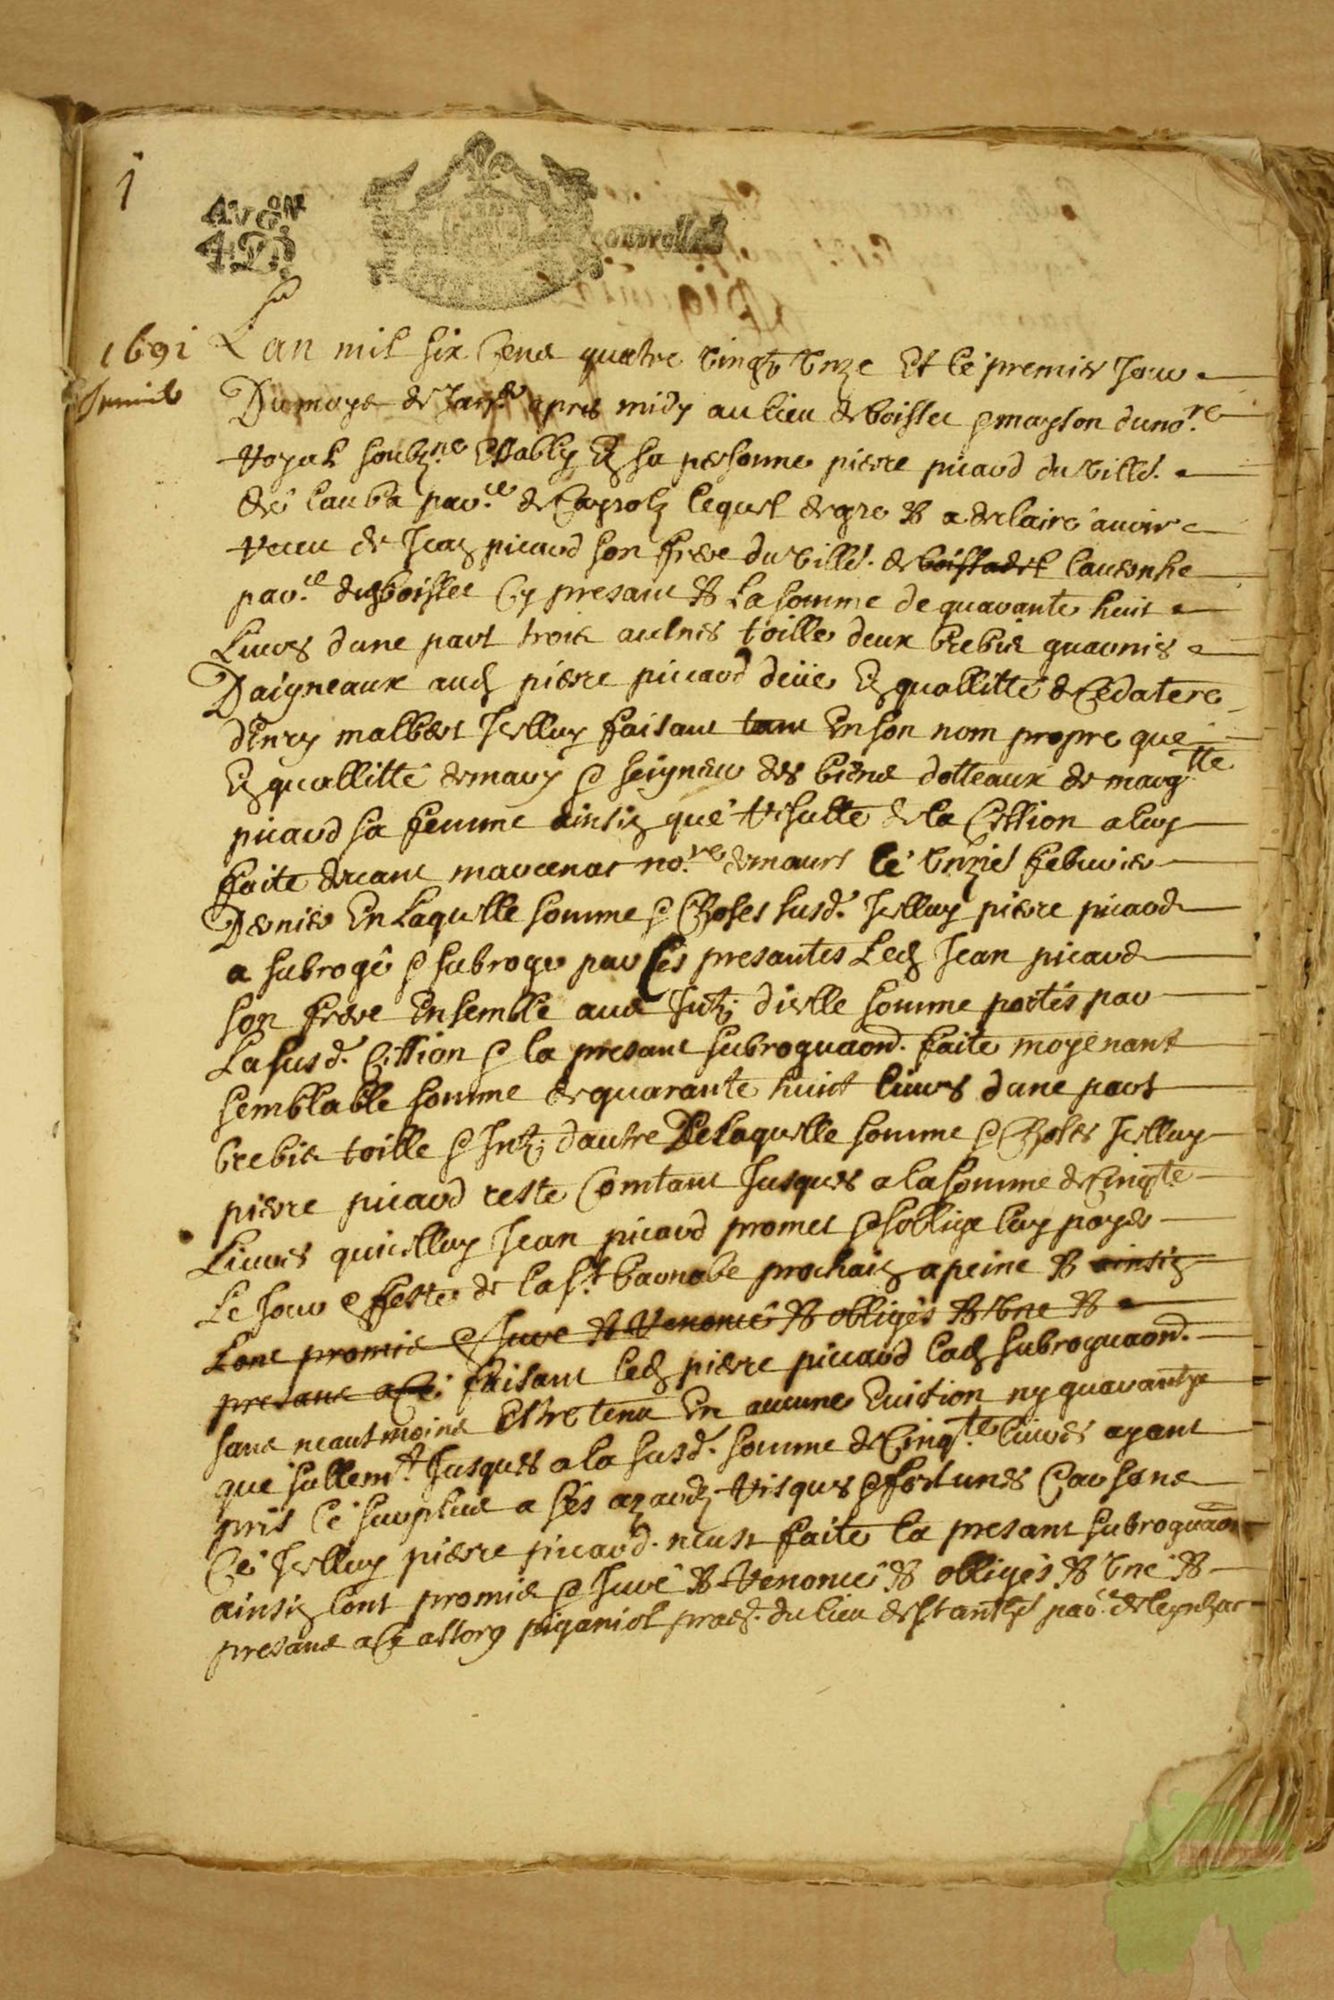 1
AVG.ON
42D.
controlles
1691
Lan mil six cens quatre vingts unze Et le premier Jour
Du moys de Janr apres midy au lieu de boisset e mayson du nore
royal soubzne Estably En sa personne pierre picard du villa.
de lauba parre de Cayrolz lequel de gre &a a declaire avoir
receu de Jean picard son frere du villa. de boissadel lauronhe
parre dud boisset Cy presant &a La somme de quarante huit
Livres dune part trois aulnes toille deux brebis guarnies
Daigneaux aud pierre piccard deüe En quallitté de Cedatere
dEnry malbert Jcelluy faisant tant En son nom propre que
En quallitté de mary e seigneur des biens dotteaux de margtte
picard sa femme ainsin que resulte de la Cession a luy
faite devant marcenac nore de maurs le unzie febvrier
Dernier En Laquelle somme e Choses susd. Jcelluy pierre picard
a subrogé e subroge par Ces presantes Led Jean picard
son frere Ensemble aux Intz dicelle somme portés par
La susd. Cession e la presant subroguaon. faite moyenant
semblable somme de quarante huint livres dune part
brebis toille e Intz dautre De Laquelle somme e Choses Jcelluy
pierre picard reste Comtant Jusques a la somme de Cinqte
Livres quicelluy Jean picard promet e soblige luy payer
Le Jour e feste de la st barnabe prochain a peine &a ainsin
Lont promis e Juré &a Renoncé &a obligés &a Une &a
presans a Ce faisant led pierre piccard lad subroguaon.
sans neautmoins Estre tenu En aucune Eviction ny guarantye
que sullemt Jusques a la susd. somme de Cinqte livres ayant
pris le surplus a ses azardz risques e fortunes Car sans
Ce Jcelluy pierre picard neust faite la presant subroguaon
ainsin lont promis e Juré &a Renoncé &a obligés &a Une &a
presans a Ce astorg piganiol prad. du lieu de parre de leynhac